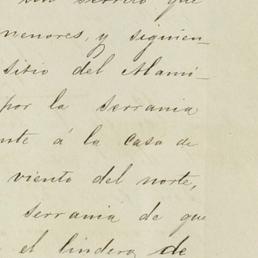 un cerrito que
menores, y siguien-
sitio del Mami-
por la serrania
nte á la casa de
viento del norte,
serrania de que
el lindero de